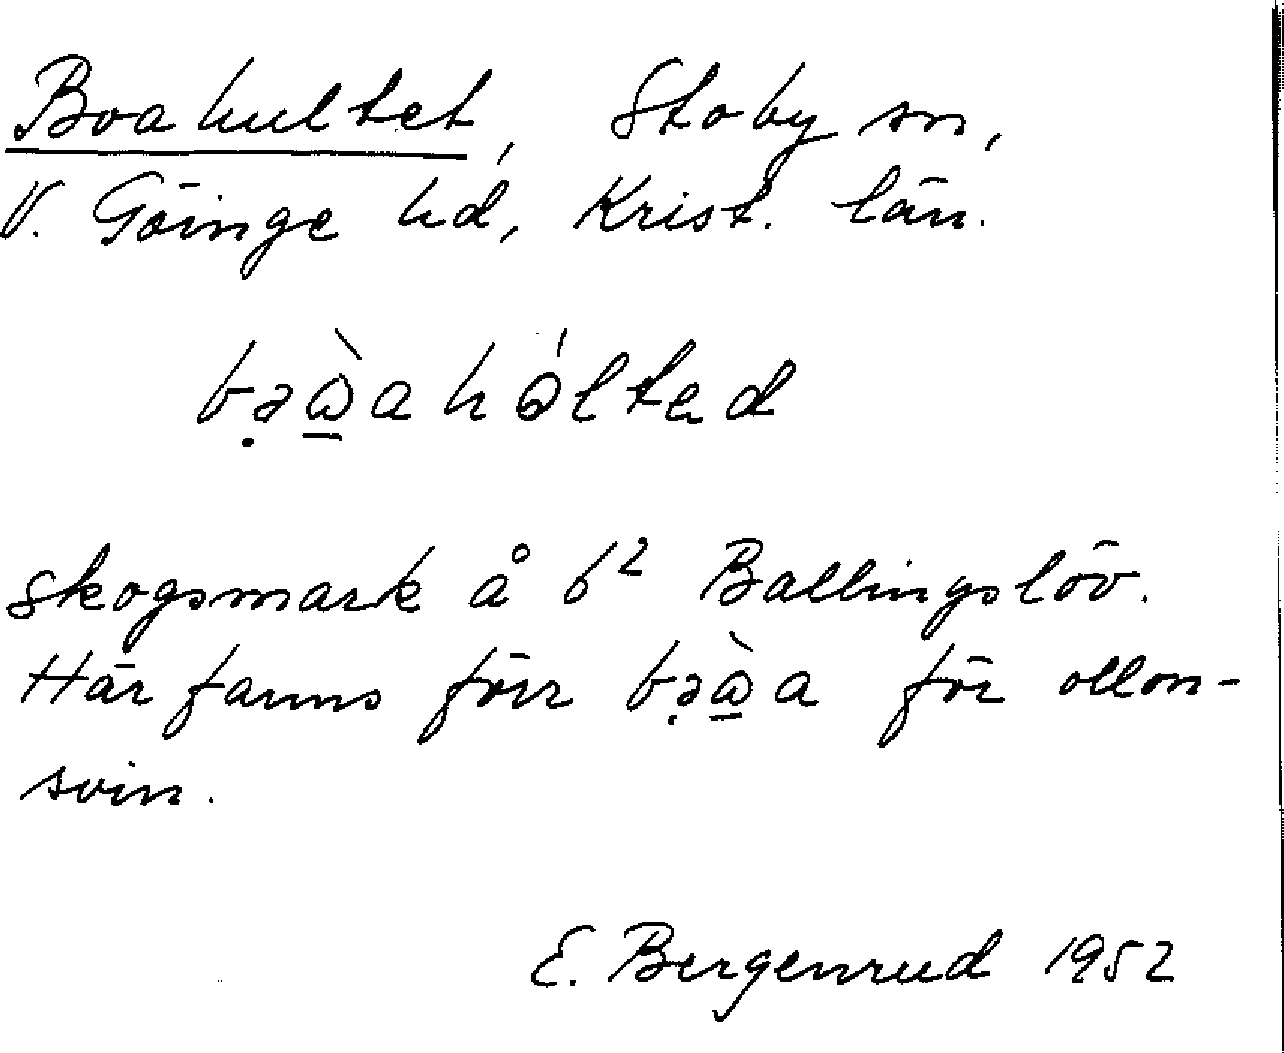 Boahultet, Stoby sn,
V. Göinge hd, Krist. län.
bə̣ὼ̱ahǿlted
skogsmark å 6² Ballingslöv.
Här fanns förr bə̣ὼ̱a för ollon-
svin.
E. Bergenrud 1952